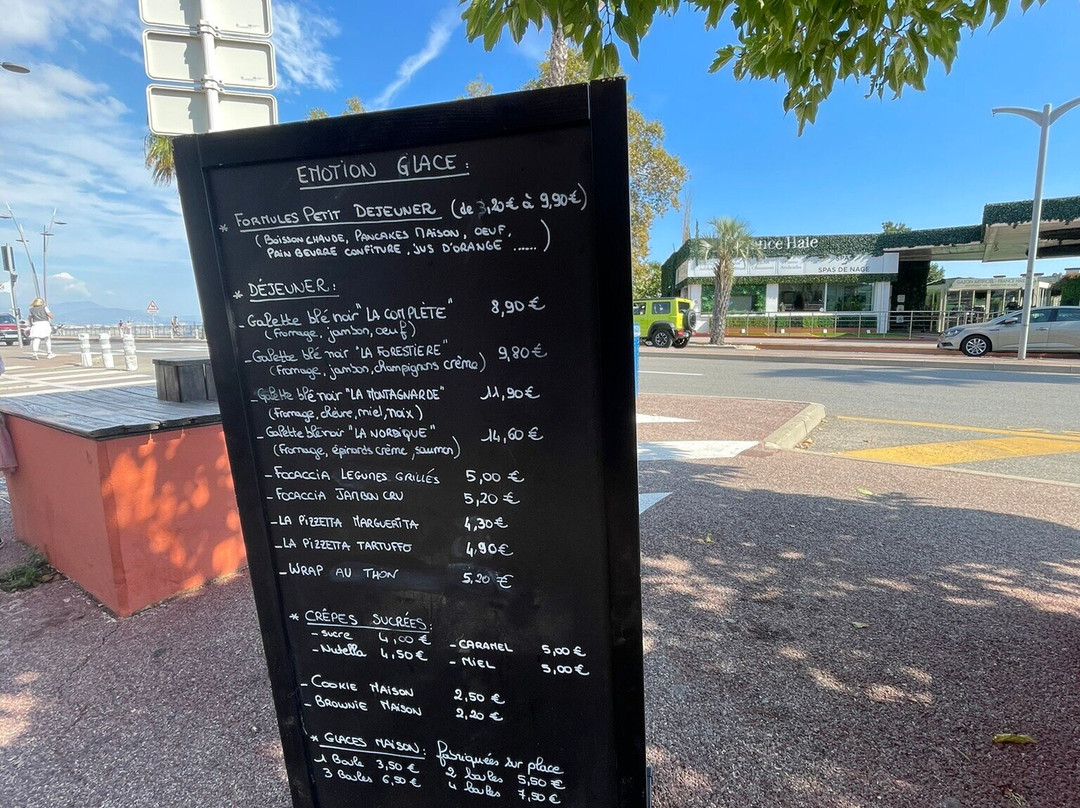 EMOTION GLACE :
* FORMULES PETIT DEJEUNER (de 3,20€ à 9,90€)
(BOISSON CHAUDE, PANCAKES MAISON, OEUF,
PAIN BEURRE CONFITURE, JUS D'ORANGE ......)
* DÉJEUNER :
- Galette blé noir "LA COMPLÈTE" 8,90€
(fromage, jambon, oeuf)
- Galette blé noir "LA FORESTIERE" 9,80€
(fromage, jambon, champignons crème)
- Galette blé noir "LA MONTAGNARDE" 11,90€
(fromage, chèvre, miel, noix)
- Galette blé noir "LA NORDIQUE" 14,60€
(fromage, épinards crème, saumon)
- FOCACCIA LEGUMES GRILLÉS 5,00 €
- FOCACCIA JAMBON CRU 5,20 €
- LA PIZZETTA MARGUERITA 4,30€
- LA PIZZETTA TARTUFFO 4,90€
- WRAP AU THON 5,20 €
* CRÊPES SUCRÉES :
- sucre 4,00 € - CARAMEL 5,00 €
- Nutella 4,50€ - MIEL 5,00€
- COOKIE MAISON 2,50 €
- BROWNIE MAISON 2,20 €
* GLACES MAISON : fabriquées sur place
1 Boule 3,50€ 2 boules 5,50€
3 Boules 6,50€ 4 boules 7,50€
nce Hale
SPAS DE NAGE